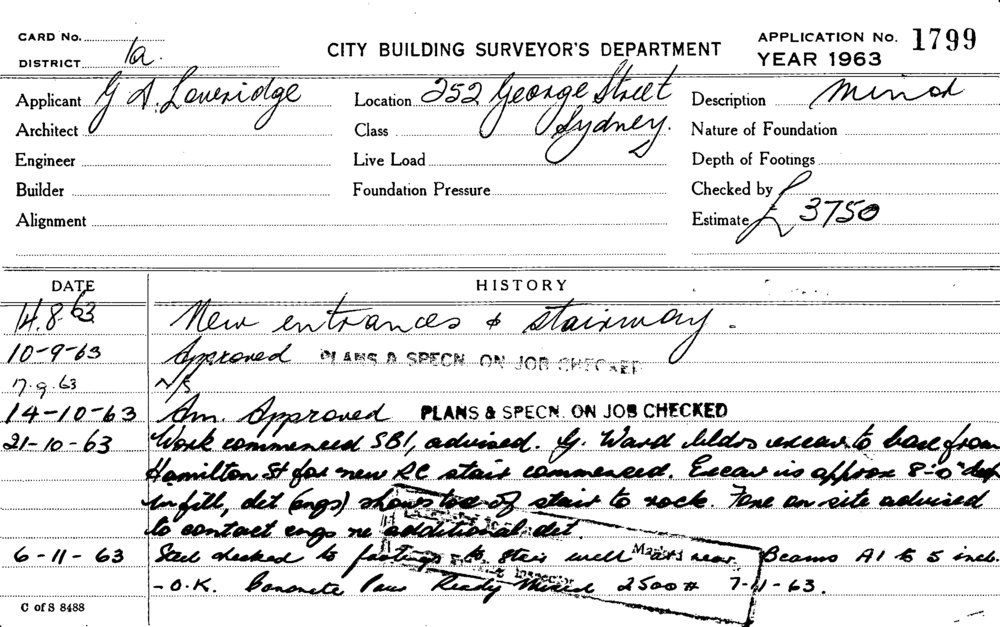 CARD No.
DISTRICT 1a.
CITY BUILDING SURVEYOR'S DEPARTMENT
APPLICATION No. 1799
YEAR 1963
Applicant G A. Loveridge
Location 252 George Street
Sydney.
Description Minor
Architect
Class
Nature of Foundation
Engineer
Live Load
Depth of Footings
Builder
Foundation Pressure
Checked by
Alignment
Estimate £ 3750
DATE HISTORY
14.8.63 New entrances & stairway.
10-9-63 Approved PLANS & SPECN. ON JOB CHECKED
17.9.63 N/S
14-10-63 Am. Approved PLANS & SPECN. ON JOB CHECKED
21-10-63 Work commenced SB1, advised. G. Ward bldrs excav. to base from
Hamilton St for new RC stair commenced. Excav is approx 8'-0" deep
in fill, det (engs) shows toe of stair to rock. Fore on site advised
to contact engs re additional det.
6-11-63 Steel checked to footings to stair well Beams A1 to 5 incl.
- O.K. Concrete Pour Ready Mixed 2500# 7-11-63.
Inspector
C of S 8488